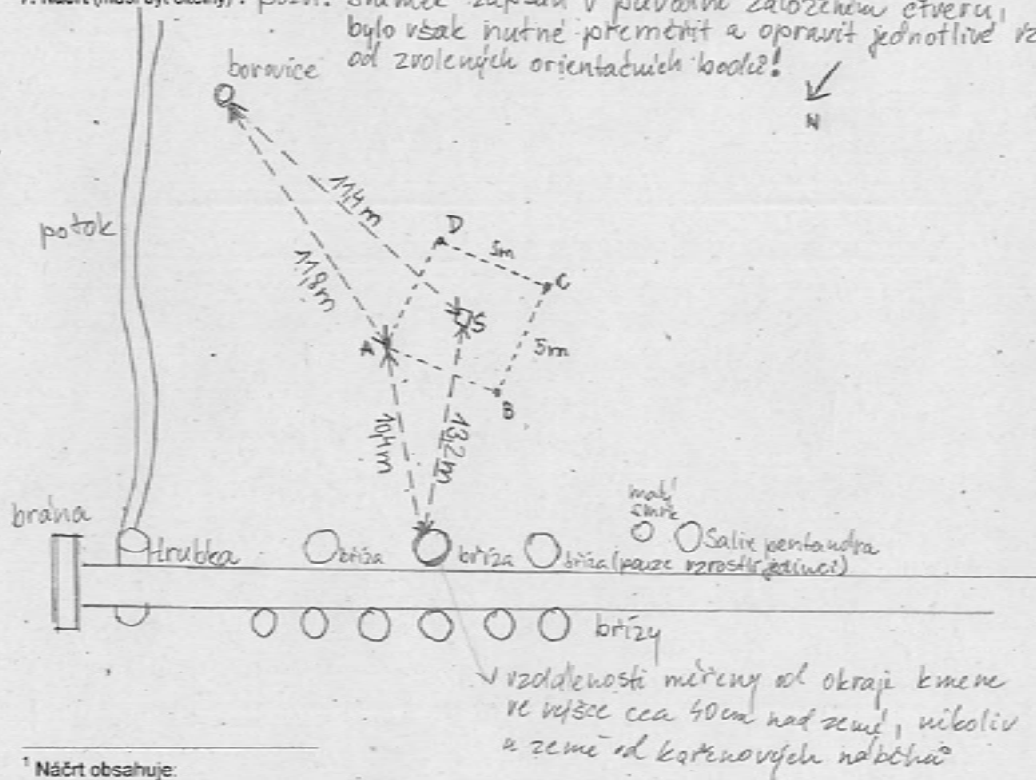 7. Náčrt (musí být úplný): pozn. snímek zapsán v původně založeném čtverci,
bylo však nutné přeměřit a opravit jednotlivé vz
od zvolených orientačních bodů!
borovice
N
potok
11,4m
11,8m
D
5m
C
S
A
5m
B
10,4m
13,2m
brána
trubka
bříza
bříza
bříza (pouze vzrostlí jedinci)
malý
smrk
Salix pentandra
břízy
vzdálenosti měřeny od okraje kmene
ve výšce cca 40cm nad zemí, nikoliv
u země od kořenových náběhů
¹ Náčrt obsahuje: